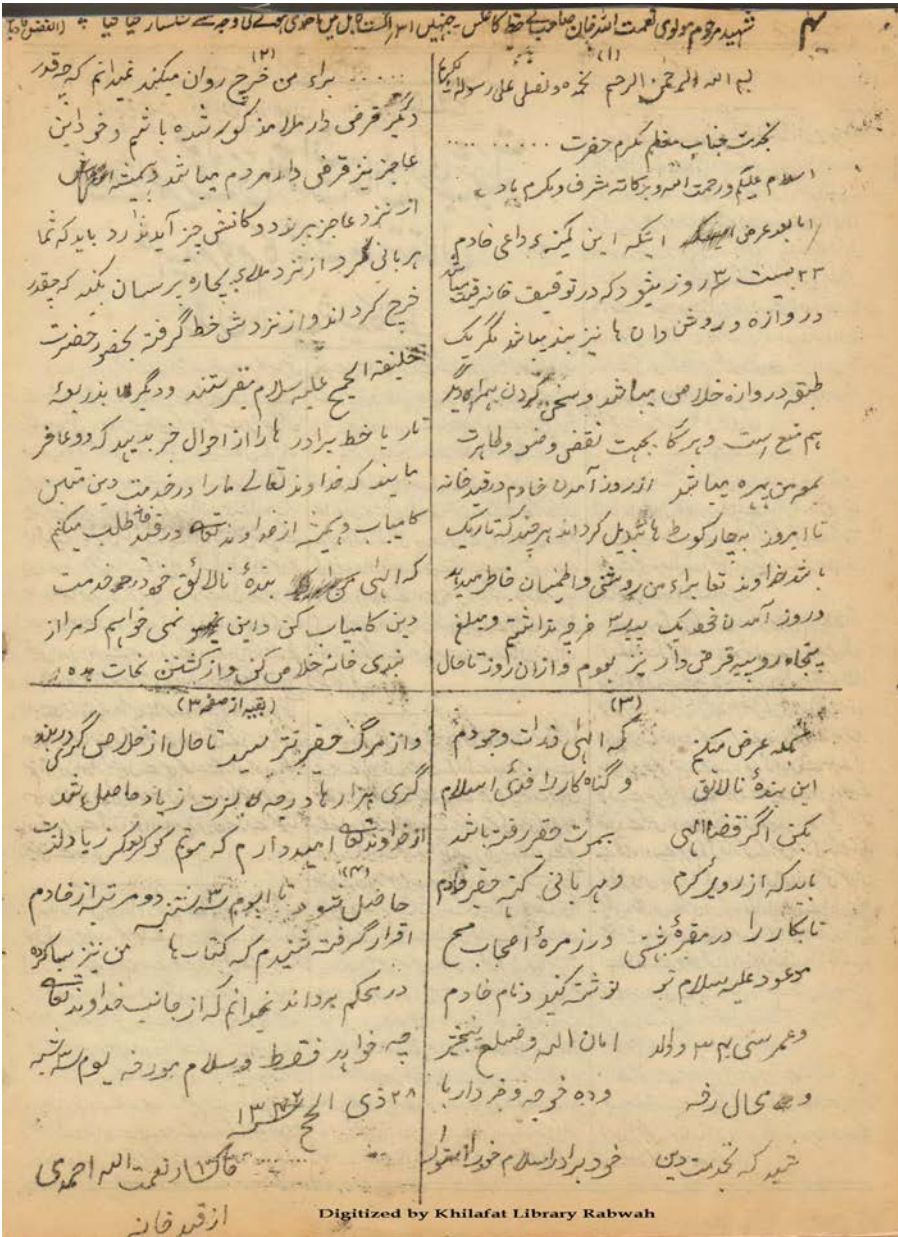 شہید مرحوم مولوی نعمت اللہ خان صاحب کے خط کا عکس - جنہیں ۳۱ اگست کابل میں احمدی ہونے کی وجہ سے سنگسار کیا گیا
(۱)
بسم اللہ الرحمٰن الرحیم نحمدہ و نصلی علیٰ رسولہ الکریم
بخدمت جناب معظم مکرم حضرت ..........
اسلام علیکم ورحمت اللہ وبرکاتہ مشرف و مکرم باد
اما بعد عرض اینکہ این کمینہ داعی خادم
۲۳ بیست ۳ روز میشود کہ در توقیف خانہ
دروازہ و روشن دان ہا نیز بند میباشد مگر یک
طبقہ دروازہ خلاص میباشد و سخن کردن ہمراہ دیگر
ہم منع است و ہرگاہ بجہت نقض وضو و طہارت
بمعہ من پہرہ میباشد از روز آمدن خادم در قید خانہ
تا امروز بہ چار کوٹ ہا تبدیل کردہ اند ہرچند کہ تاریک
باشد خداوند تعا براء من روشنی و اطمینان خاطر میدہد
و روز آمدن خود یک پیسہ خرچہ نداشتم و مبلغ
پنجاہ روپیہ قرض دار نیز بودم و ازان روز تا حال
(۲)
..... براء من خرچ روان میکند نمیدانم کہ چہ قدر
دیگر قرض دار ملا مذکور شدہ باشم و خود این
عاجز نیز قرض دار مردم میباشد و ہمیشہ
از نزد عاجز ببرند و دکانش چیز آید ندارد باید کہ شما
ہربانی کرد از نزد ملاء بیچارہ پرسان بکنید کہ چقدر
خرچ کردہ اند و از نزدش خط گرفتہ بحضور حضرت
خلیفۃ المسیح علیہ سلام بفرستند و دیگر بذریعہ
تار یا خط برادر ہا را از احوال خبر بدہید کہ دوعا فر
مایند کہ خداوند تعالے ما را در خدمت دین متین
کامیاب و ہمیشہ از خداوند تعا در قید طلب میکنم
کہ الٰہی بندۂ نالائق خود در خدمت
دین کامیاب کن و این نمی خواہیم کہ مرا از
بندی خانہ خلاص کن و از کشتن نجات بدہ
(۳)
بلکہ عرض میکنم کہ الٰہی ذرات وجودم
این بندۂ نالائق و گناہ کار را فدئ اسلام
بکن اگر قضا الٰہی بموت حقیر رفتہ باشد
باید کہ از روئے کرم و مہربانی کنہ حقیر خادم
نابکار را در مقبرۂ بہشتی و در زمرۂ اصحاب مسیح
موعود علیہ سلام نوشتہ کنید و نام خادم
و عمر سی ۳۴ و ولد امان اللہ و ضلع پنجشیر
و محال رخہ و دہ خوجہ و خبردار با
شید کہ بخدمت دین خود برادر اسلام خود را
(بقیہ از صفحہ ۳)
و از مرگ حقیر نترسید تا حال از خلاص گری در بند
گری ہزارہا درجہ لزت زیاد حاصل شد
از خداوند تعا امیدوارم کہ موتم لزت زیاد
(۴)
حاصل شود تا الیوم ۳ شنبہ دو مرتبہ از خادم
اقرار گرفتہ شنیدم کہ کتاب ہا من نیز سیاکردہ
در محکم بردہ اند نمیدانم کہ از جانب خداوند تعا
چہ خواہد فقط و سلام مورخہ یوم سہ شنبہ
۲۸ ذی الحج ۱۳۴۲
خاکسار نعمت اللہ احمدی
از قید خانہ
Digitized by Khilafat Library Rabwah